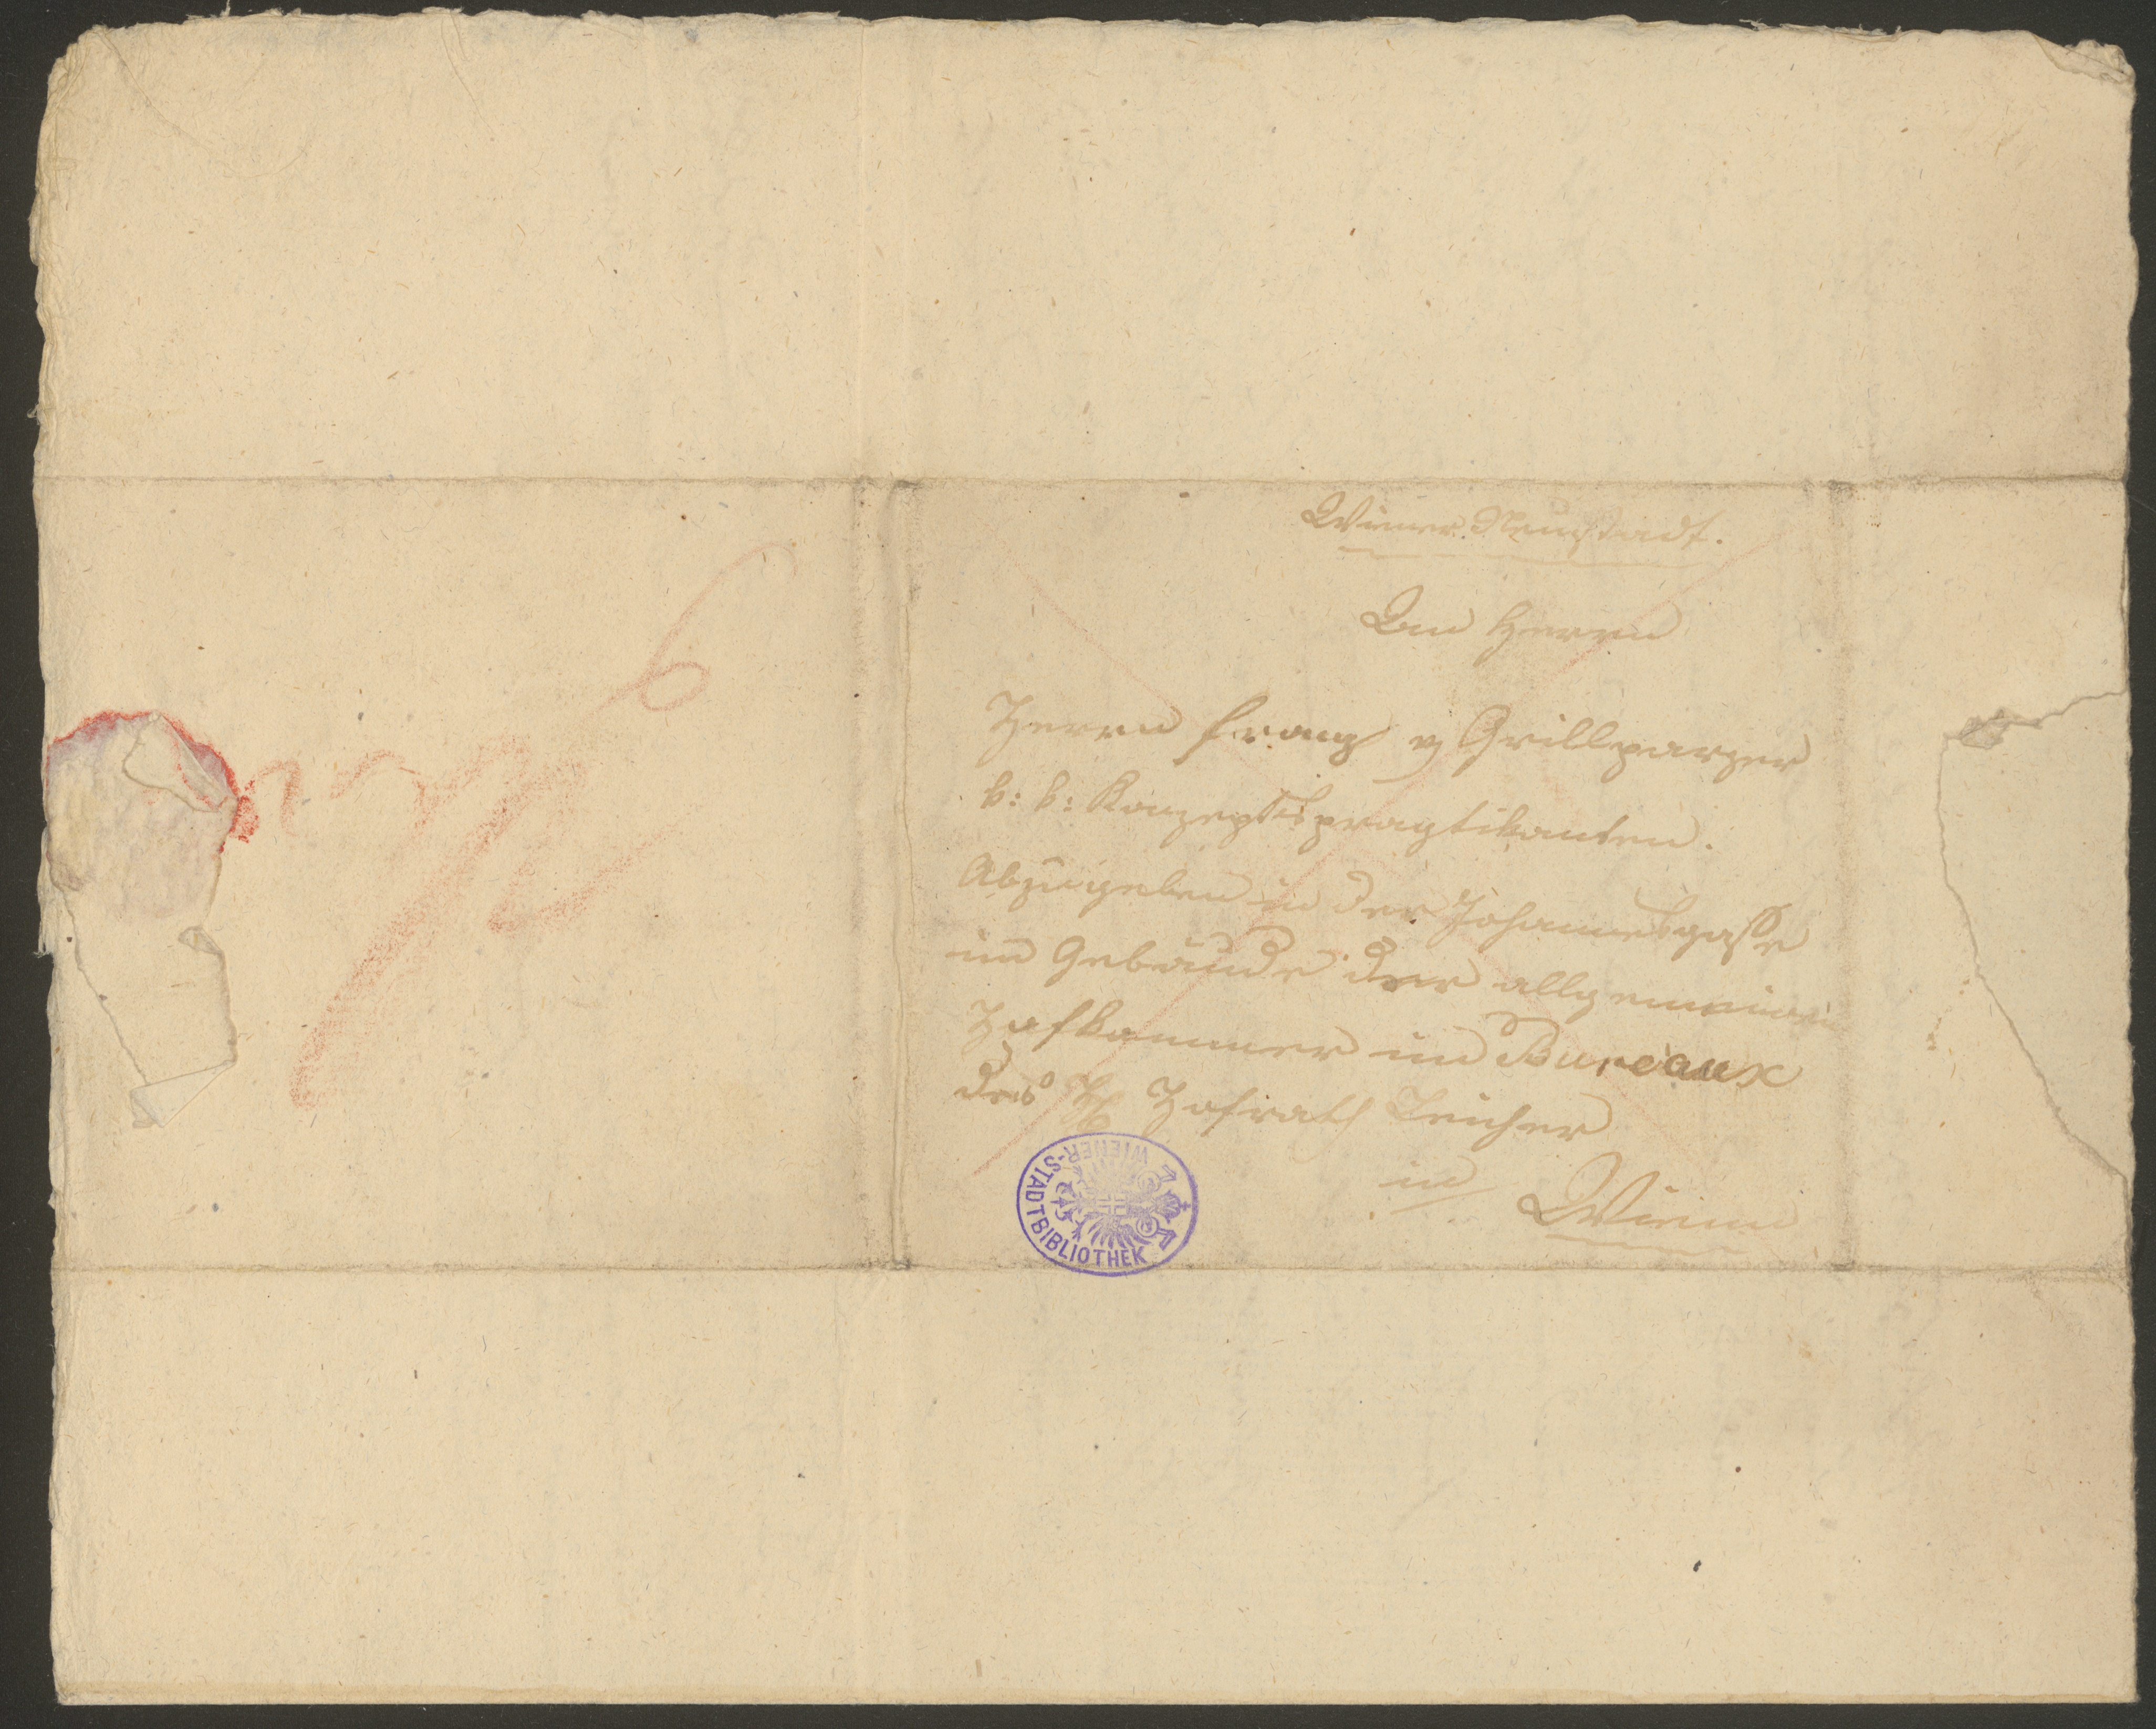 Wiener Neustadt.
Dem Herrn
Herrn Franz v Grillparzer
k: k: Konzeptspragtikanten.
Abzugeben in der Johannesgasse
im Gebäude der allgemeinen
Hofkammer im Bureaux
des H Hofrath Teicher
in Wienn
WIENER-STADTBIBLIOTHEK
6